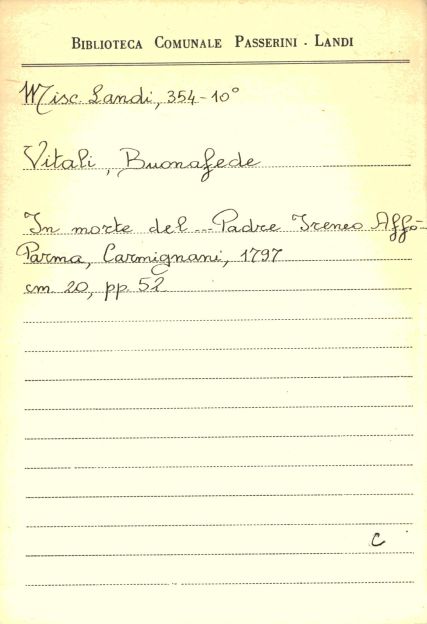 BIBLIOTECA COMUNALE PASSERINI - LANDI
Misc. Landi, 354-10°
Vitali, Buonafede
In morte del ... Padre Ireneo Affò-
Parma, Carmignani, 1797
cm. 20, pp. 52
C